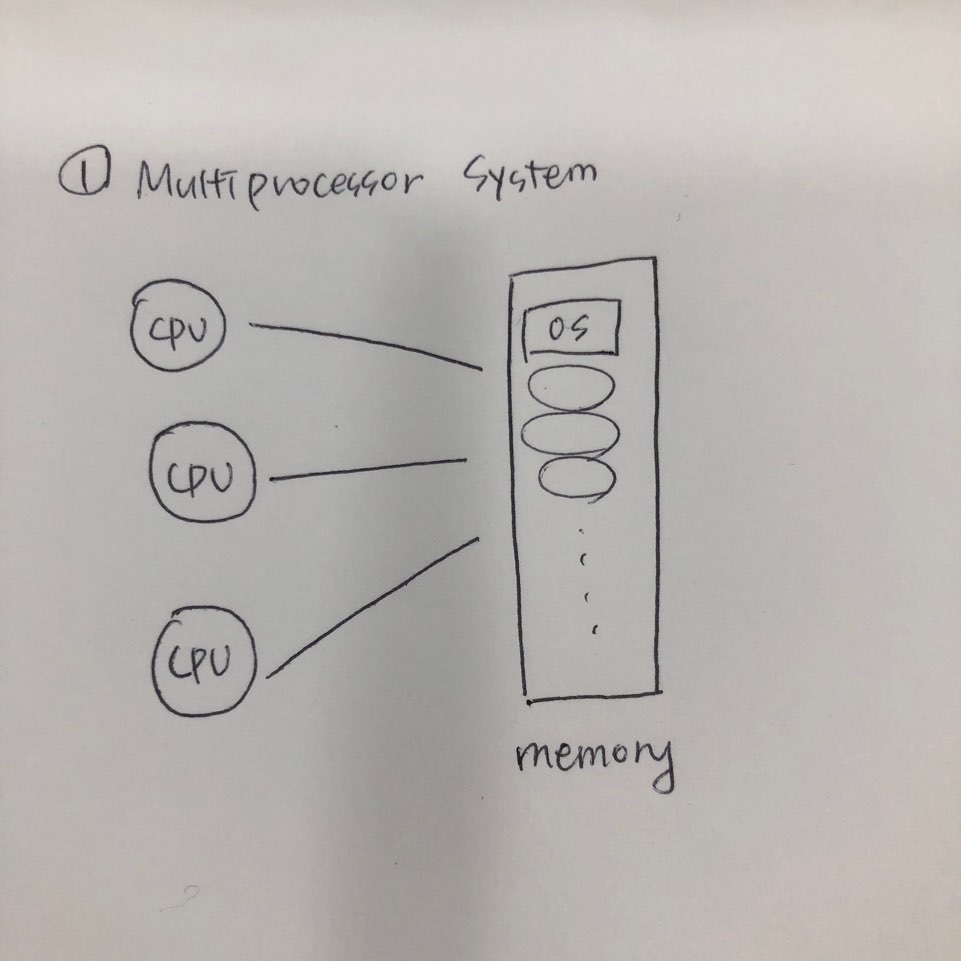 ① Multiprocessor System
CPU
OS
CPU
CPU
memory